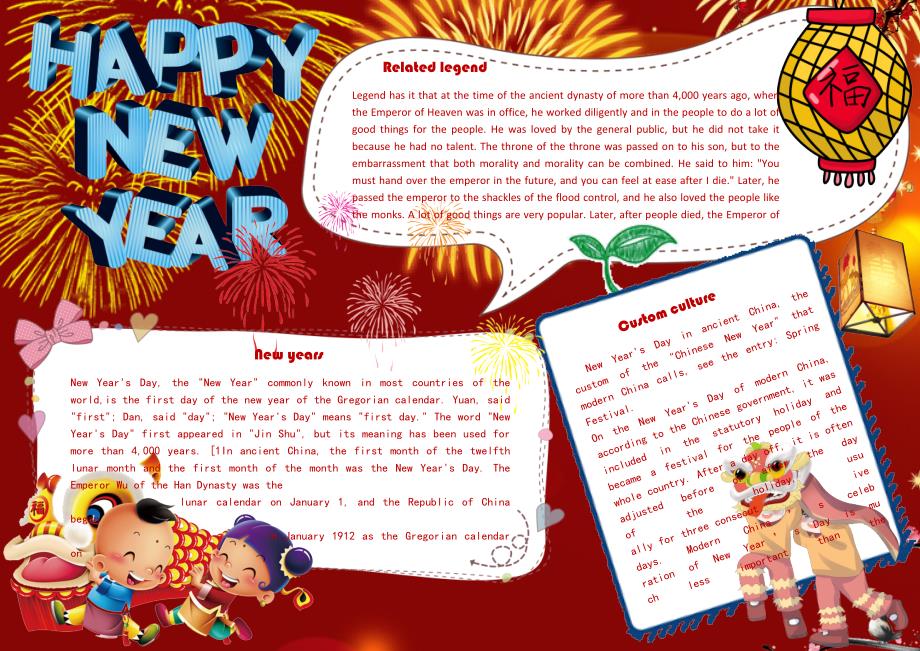 HAPPY
NEW
YEAR
Related legend
Legend has it that at the time of the ancient dynasty of more than 4,000 years ago, when
the Emperor of Heaven was in office, he worked diligently and in the people to do a lot of
good things for the people. He was loved by the general public, but he did not take it
because he had no talent. The throne of the throne was passed on to his son, but to the
embarrassment that both morality and morality can be combined. He said to him: "You
must hand over the emperor in the future, and you can feel at ease after I die." Later, he
passed the emperor to the shackles of the flood control, and he also loved the people like
the monks. A lot of good things are very popular. Later, after people died, the Emperor of
福
New years
New Year's Day, the "New Year" commonly known in most countries of the
world,is the first day of the new year of the Gregorian calendar. Yuan, said
"first"; Dan, said "day"; "New Year's Day" means "first day." The word "New
Year's Day" first appeared in "Jin Shu", but its meaning has been used for
more than 4,000 years. [1In ancient China, the first month of the twelfth
lunar month and the first month of the month was the New Year's Day. The
Emperor Wu of the Han Dynasty was the
lunar calendar on January 1, and the Republic of China
January 1912 as the Gregorian calendar
on
福
Custom culture
New Year's Day in ancient China, the
custom of the "Chinese New Year" that
modern China calls, see the entry: Spring
Festival.
On the New Year's Day of modern China,
according to the Chinese government, it was
included in the statutory holiday and
became a festival for the people of the
whole country. After a day off, it is often
adjusted before the day
of the holiday, usu
ally for three consecut ive
days. Modern China's celeb
ration of New Year's Day is mu
ch less important than the